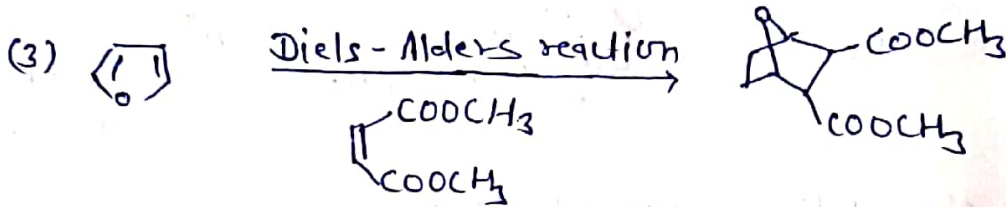 (3) O Diels-Alders reaction O COOCH3
COOCH3
COOCH3
COOCH3